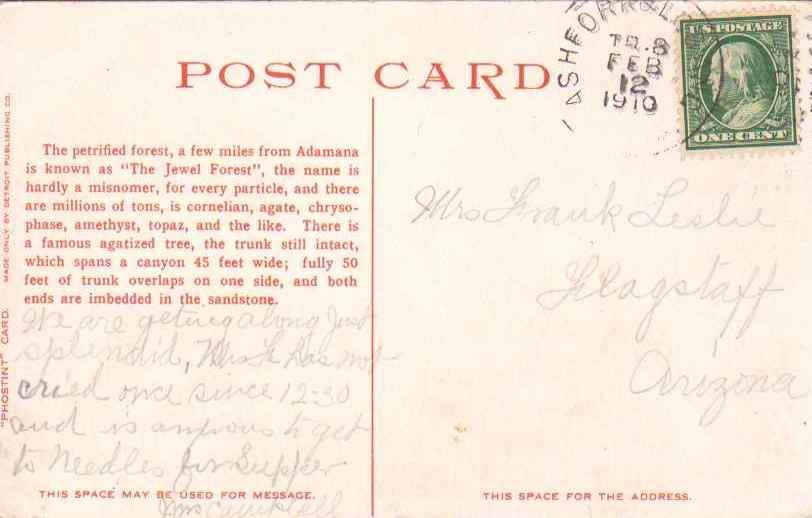 POST CARD
ASHFORK & L
TR. 8
FEB
12
1910
U.S. POSTAGE
ONE CENT
The petrified forest, a few miles from Adamana
is known as "The Jewel Forest", the name is
hardly a misnomer, for every particle, and there
are millions of tons, is cornelian, agate, chryso-
phase, amethyst, topaz, and the like. There is
a famous agatized tree, the trunk still intact,
which spans a canyon 45 feet wide; fully 50
feet of trunk overlaps on one side, and both
ends are imbedded in the sandstone.
We are geting along Just
splendid, Mrs has not
cried once since 12-30
and is anxious to get
to Needles for Supper
Mrs Campbell
THIS SPACE MAY BE USED FOR MESSAGE.
Mrs Frank Leslie
Flagstaff
Arizona
THIS SPACE FOR THE ADDRESS.
"PHOSTINT" CARD. MADE ONLY BY DETROIT PUBLISHING CO.